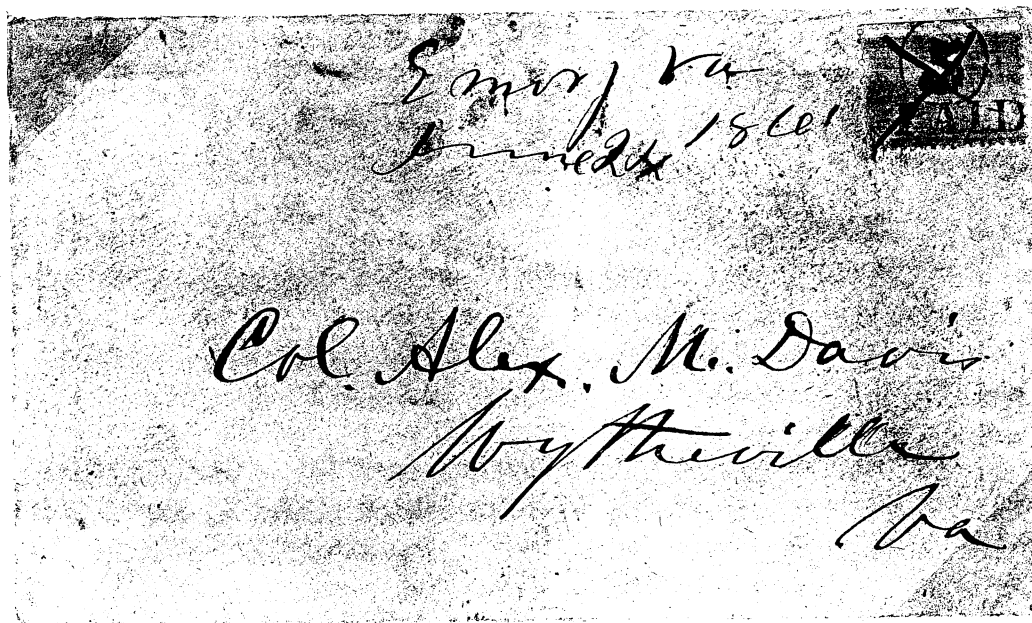 Emory Va
June 24 1861
PAID
Col. Alex. M. Davis
Wytheville
Va